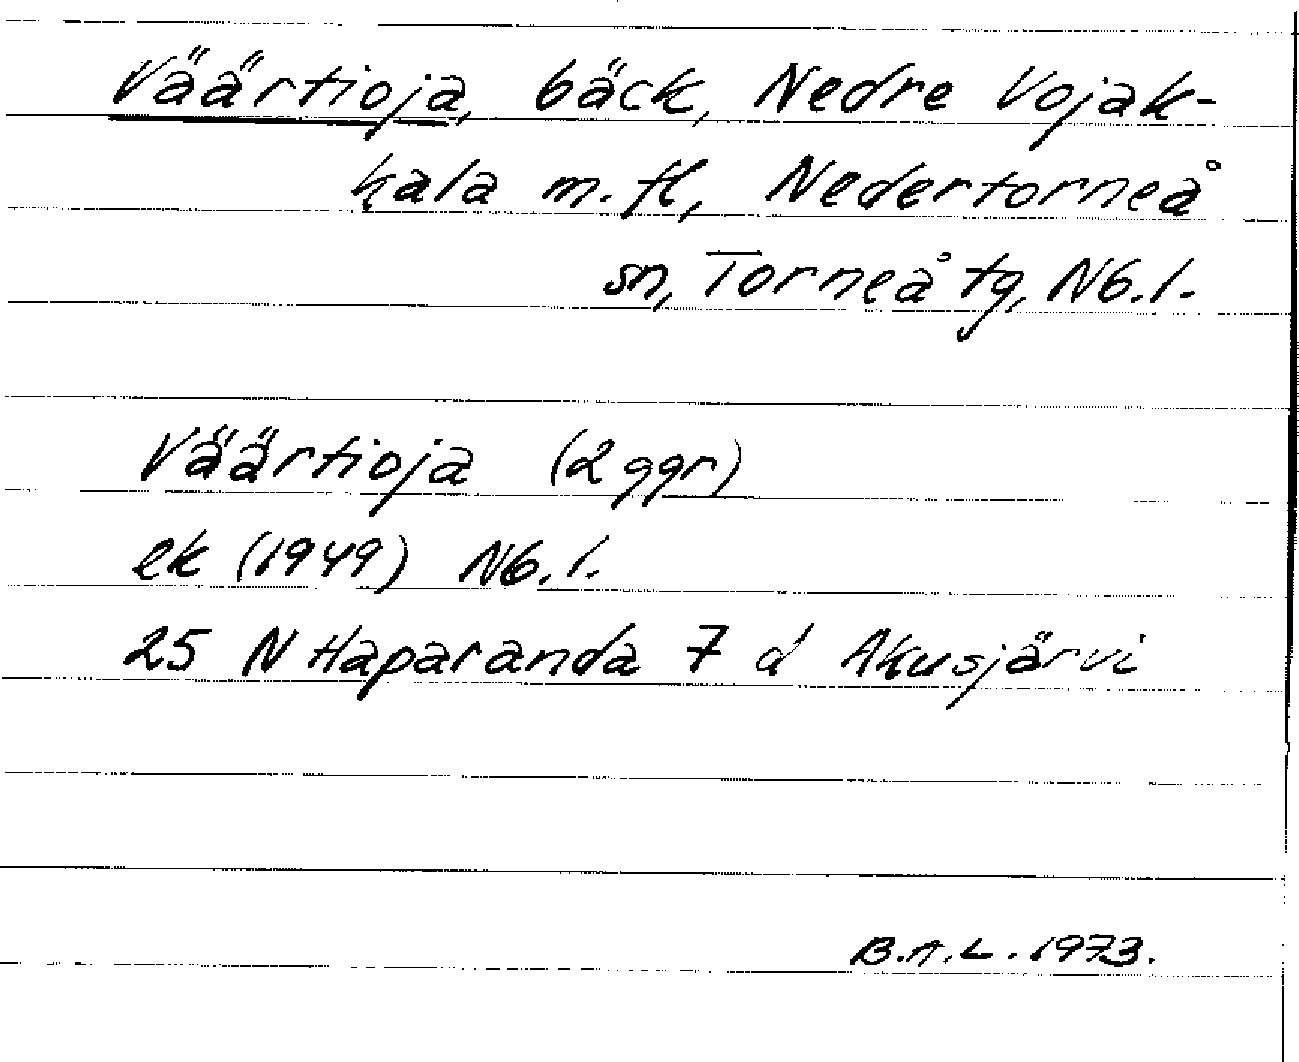 Väärtioja, bäck, Nedre Vojak-
kala m.fl, Nedertorneå
sn, Torneå tg, Nb.l.
Väärtioja (2 ggr)
ek (1949) Nb.l.
25 N Haparanda 7 d Akusjärvi
B.A.L. 1973.